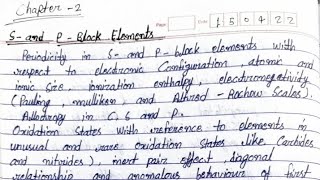 Chapter - 2
Page: Date: 15 04 22
S- and P-Block Elements
Periodicity in S- and P-block elements with
respect to electronic Configuration, atomic and
ionic Size, ionization enthalpy, electronegativity
(Pauling, mulliken and Allred-Rochow Scales).
Allotropy in C, S and P.
Oxidation States with reference to elements in
unusual and rare oxidation States like Carbides
and nitrides), inert pair effect, diagonal
relationship and anomalous behaviour of first